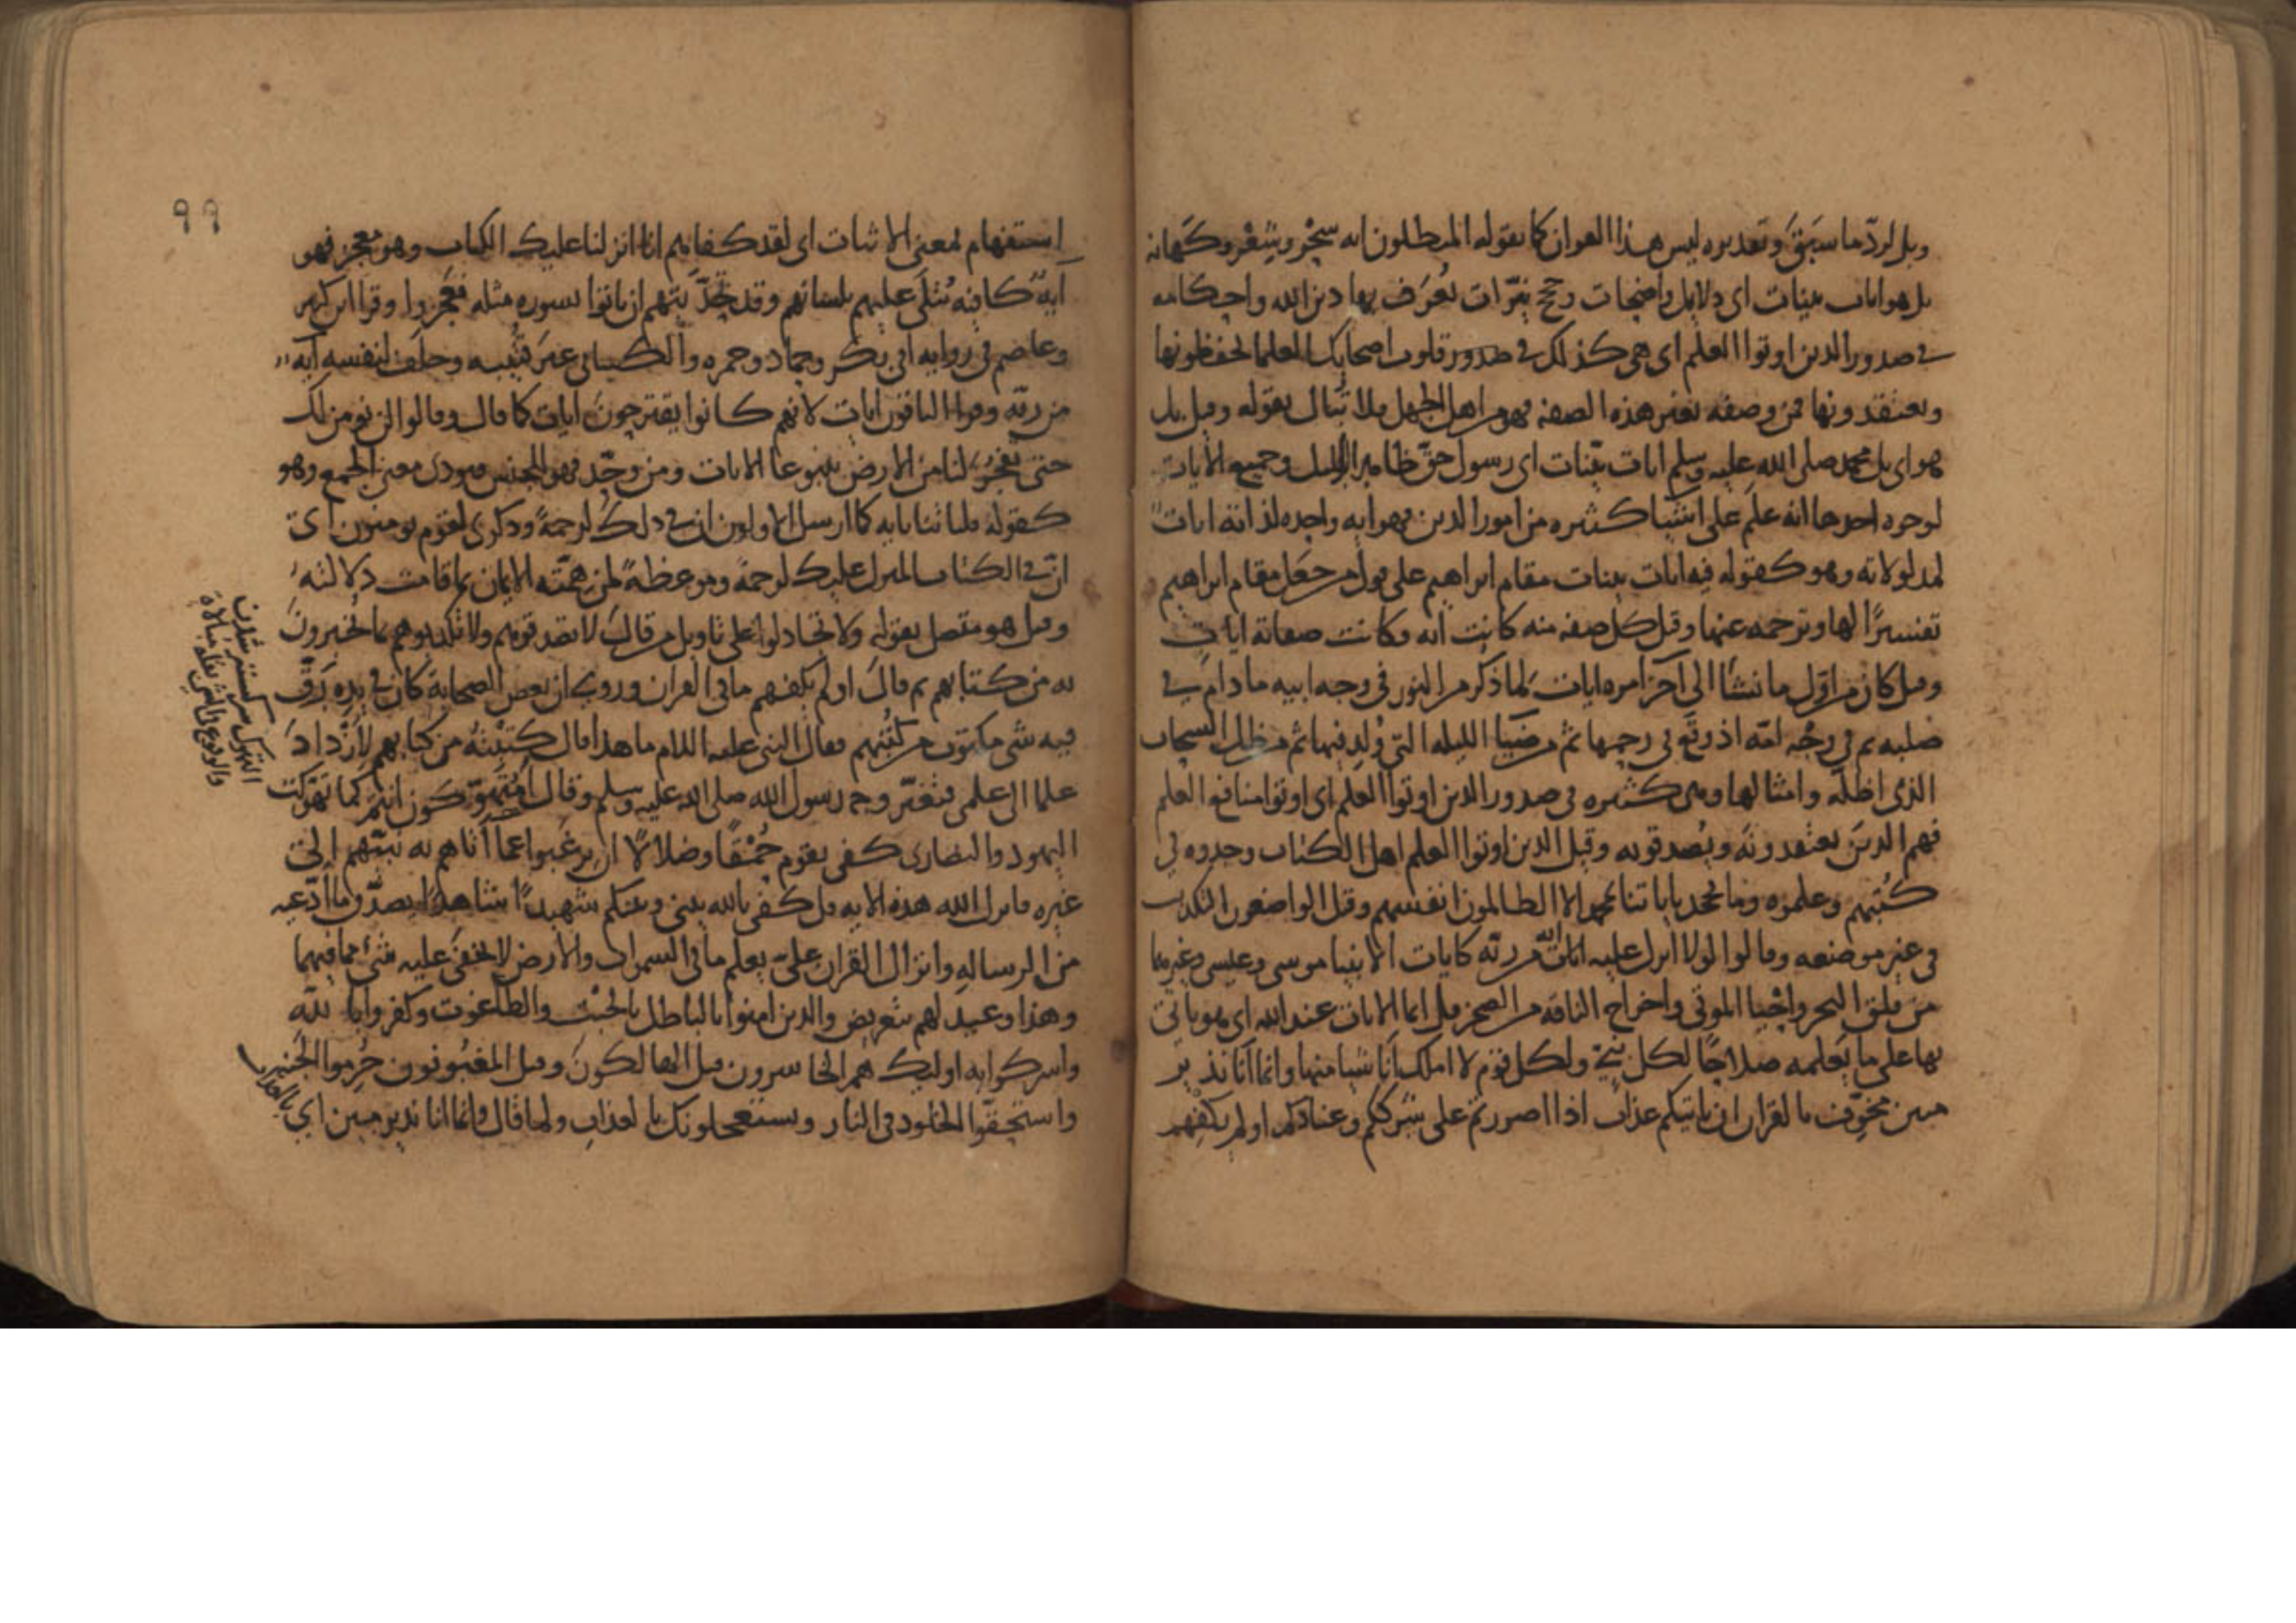 وبل لردّ ما سبق وتقديره ليس هذا القران كما يقوله المبطلون انه سحر وشعر وكهانه
بل هو ايات بينات اى دلايل واضحات وحجج نيّرات تُعرَف بها دين الله واحكامه
في صدور الذين اوتوا العلم اى هى كذلك في صدور قلوب اصحابك العلما يحفظونها
ويعتقدونها فمن وصفه بغير هذه الصفه فهو من اهل الجهل فلا تبال بقوله وقيل بل
هو اى بل محمد صلى الله عليه وسلم ايات بيّنات اى رسول حق ظاهر الدليل وجميع الايات
لوجوه احدها انه علم على اشيا كثيره من امور الدين فهو ايه واحده لذاته ايات
لمدلولاته وهو كقوله فيه ايات بينات مقام ابراهيم على قول من جعل مقام ابراهيم
تفسيرًا لها وترجمه عنها وقيل كل صفه منه كانت ايه فكانت صفاته ايات
وقيل كان من اوّل ما نشا الى آخر امره ايات لما ذكر من النور فى وجه ابيه ما دام في
صلبه ثم في وجه امّه اذ وقع في رحمها ثم من ضيا الليله التي وُلد فيها ثم من ظل السحاب
الذى اظله وامثالها وهى كثيره في صدور الذين اوتوا العلم اى اوتوا منافع العلم
فهم الذين يعتقدونه ويصدقونه وقيل الذين اوتوا العلم اهل الكتاب وجدوه في
كُتبهم وعلموه وما يجحد باياتنا الا الظالمون انفسهم وقيل الواضعون التكذيب
في غير موضعه وقالوا لولا انزل عليه ايات من ربّه كايات الانبيا موسى وعيسى وغيرهما
من فلق البحر واحيا الموتى واخراج الناقه من الصخر قل انما الايات عند الله اى هو ياتى
بها على ما يعلمه صلاحًا لكل نبىّ ولكل قوم لا املك انا شيا منها وانما انا نذير
مبين مخوّف بالقران ان ياتيكم عذاب اذا اصررتم على شرككم وعنادكم اولم يكفهم
٩٩
استفهام لمعنى الاثبات اى لقد كفاهم انا انزلنا عليك الكتاب وهو معجز فهو
آيةٌ كافيه تُتلى عليهم بلسانهم وقد تحدّيتهم ان ياتوا بسوره مثله فعجزوا وقرا ابن كثير
وعاصم في روايه ابى بكر وحماد وحمزه والكسائى غير قتيبه وخلف لنفسه آيه
من ربّه وقرا الباقون ايات لانهم كانوا يقترحون ايات كما قال وقالوا لن نومن لك
حتى تفجر لنا من الارض ينبوعا الايات ومن وحّد فهو للجنس فيودى معنى الجمع وهو
كقوله فلياتنا بايه كما ارسل الاولون ان في ذلك لرحمةً وذكرى لقوم يومنون اى
انّ في الكتاب المنزل عليك لرحمةً وموعظهً لمن همّته الايمان بما قامت دلالته
وقيل هو متصل بقوله ولا تجادلوا على تاويل من قال لا تصدقوهم ولا تكذبوهم بما يخبرون
به من كتابهم ثم قال اولم يكفهم ما في القران وروى ان بعض الصحابة كان في يده رَقّ
فيه شى مكتوب من كتبهم فقال النبى عليه السلام ما هذا قال كتبته من كتابهم لازداد
علما الى علمى فتغيّر وجه رسول الله صلى الله عليه وسلم وقال امتهوّكون انتم كما تهوّكت
اليهود والنصارى كفى بقوم حُمقًا وضلالًا ان يرغبوا عما اتاهم به نبيّهم الى
غيره فانزل الله هذه الايه قل كفى بالله بينى وبينكم شهيدًا شاهدًا يصدّق ما ادّعيه
من الرساله وانزال القران علىّ يعلم ما في السموات والارض لا يخفى عليه شئ مما فيهما
وهذا وعيد لهم بتعريض والذين امنوا بالباطل بالجبت والطاغوت وكفروا بالله
واشركوا به اوليك هم الخاسرون قيل الهالكون وقيل المغبونون حُرموا الجنه
واستحقّوا الخلود في النار ويستعجلونك بالعذاب ولما قال وانما انا نذير مبين اى بالعذاب
التهوك
والوقوع في الشى بقلة مبالاة